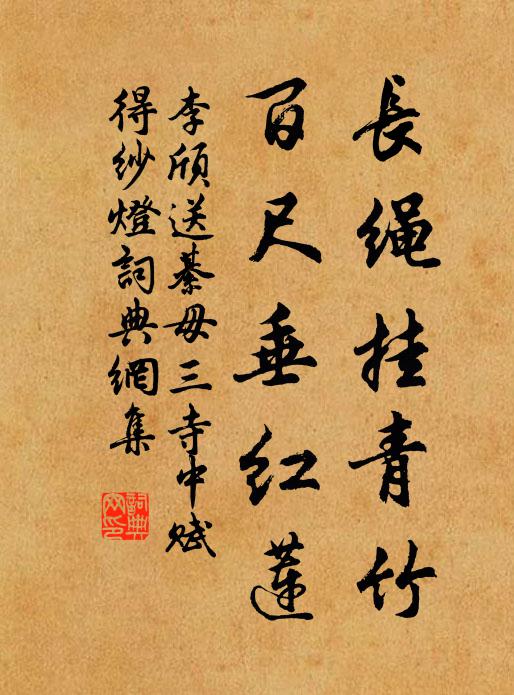 長繩挂青竹
百尺垂紅蓮
李頎送綦毋三寺中賦
得紗燈詞典網集
詞典
网印